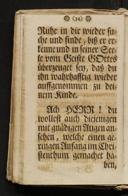 Ruhe in dir wieder su-
che und finde, biß er er-
kenne und in seiner See-
le vom Geiste GOttes
überzeuget sey, daß du
ihn wahrhafftig wieder
auffgenommen zu dei-
nem Kinde.
Ach HERR! du
wollest auch diejenigen
mit gnädigen Augen an-
sehen, welche einen ge-
ringen Anfang im Chri-
stenthum gemachet ha-
ben,